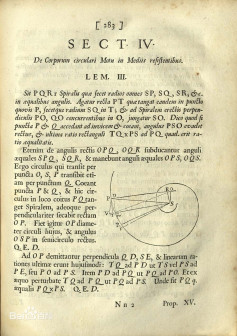 [ 283 ]
SECT. IV.
De Corporum circulari Motu in Mediis resistentibus.
LEM. III.
Sit PQRr Spiralis quæ secet radios omnes SP, SQ, SR, &c.
in æqualibus angulis. Agatur recta PT quæ tangat eandem in puncto
quovis P, secetque radium SQ in T; & ad Spiralem erectis perpen-
diculis PO, QO concurrentibus in O, jungatur SO. Dico quod si
puncta P & Q accedant ad invicem & coeant, angulus PSO evadet
rectus, & ultima ratio rectanguli TQ x PS ad PQ quad. erit ra-
tio æqualitatis.
Etenim de angulis rectis OPQ, OQR subducantur anguli
æquales SPQ, SQR, & manebunt anguli æquales OPS, OQS.
Ergo circulus qui transit per
puncta O, S, P transibit eti-
am per punctum Q. Coeant
puncta P & Q, & hic cir-
culus in loco coitus PQ tan-
get Spiralem, adeoque per-
pendiculariter secabit rectam
OP. Fiet igitur OP diame-
ter circuli hujus, & angulus
OSP in semicirculo rectus.
Q. E. D.
Ad OP demittantur perpendicula QD, SE, & linearum ra-
tiones ultimæ erunt hujusmodi: TQ ad PD ut TS vel PS ad
PE, seu PO ad PS. Item PD ad PQ ut PQ ad PO. Et ex
æquo perturbate TQ ad PQ ut PQ ad PS. Unde fit PQq.
æqualis TQ x PS. Q. E. D.
N n 2
Prop. XV.